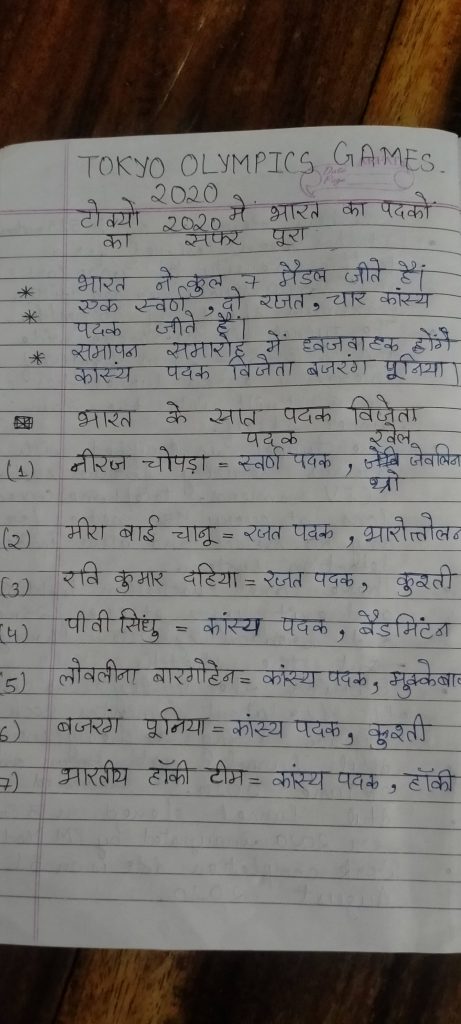 TOKYO OLYMPICS GAMES.
2020
टोक्यो 2020 में भारत का पदकों
का सफर पूरा
* भारत ने कुल 7 मैडल जीते हैं।
* एक स्वर्ण, दो रजत, चार कांस्य
पदक जीते हैं।
* समापन समारोह में ध्वजवाहक होंगे
कांस्य पदक विजेता बजरंग पूनिया।
भारत के सात पदक विजेता
पदक खेल
(1) नीरज चोपड़ा = स्वर्ण पदक, जेवलिन
थ्रो
(2) मीरा बाई चानू = रजत पदक, भारोत्तोलन
(3) रवि कुमार दहिया = रजत पदक, कुश्ती
(4) पीवी सिंधु = कांस्य पदक, बैडमिंटन
5) लोवलीना बारगोहेन = कांस्य पदक, मुक्केबा
6) बजरंग पूनिया = कांस्य पदक, कुश्ती
7) भारतीय हॉकी टीम = कांस्य पदक, हॉकी